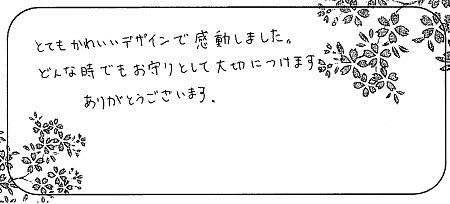 とてもかわいいデザインで感動しました。
どんな時でもお守りとして大切につけます
ありがとうございます.